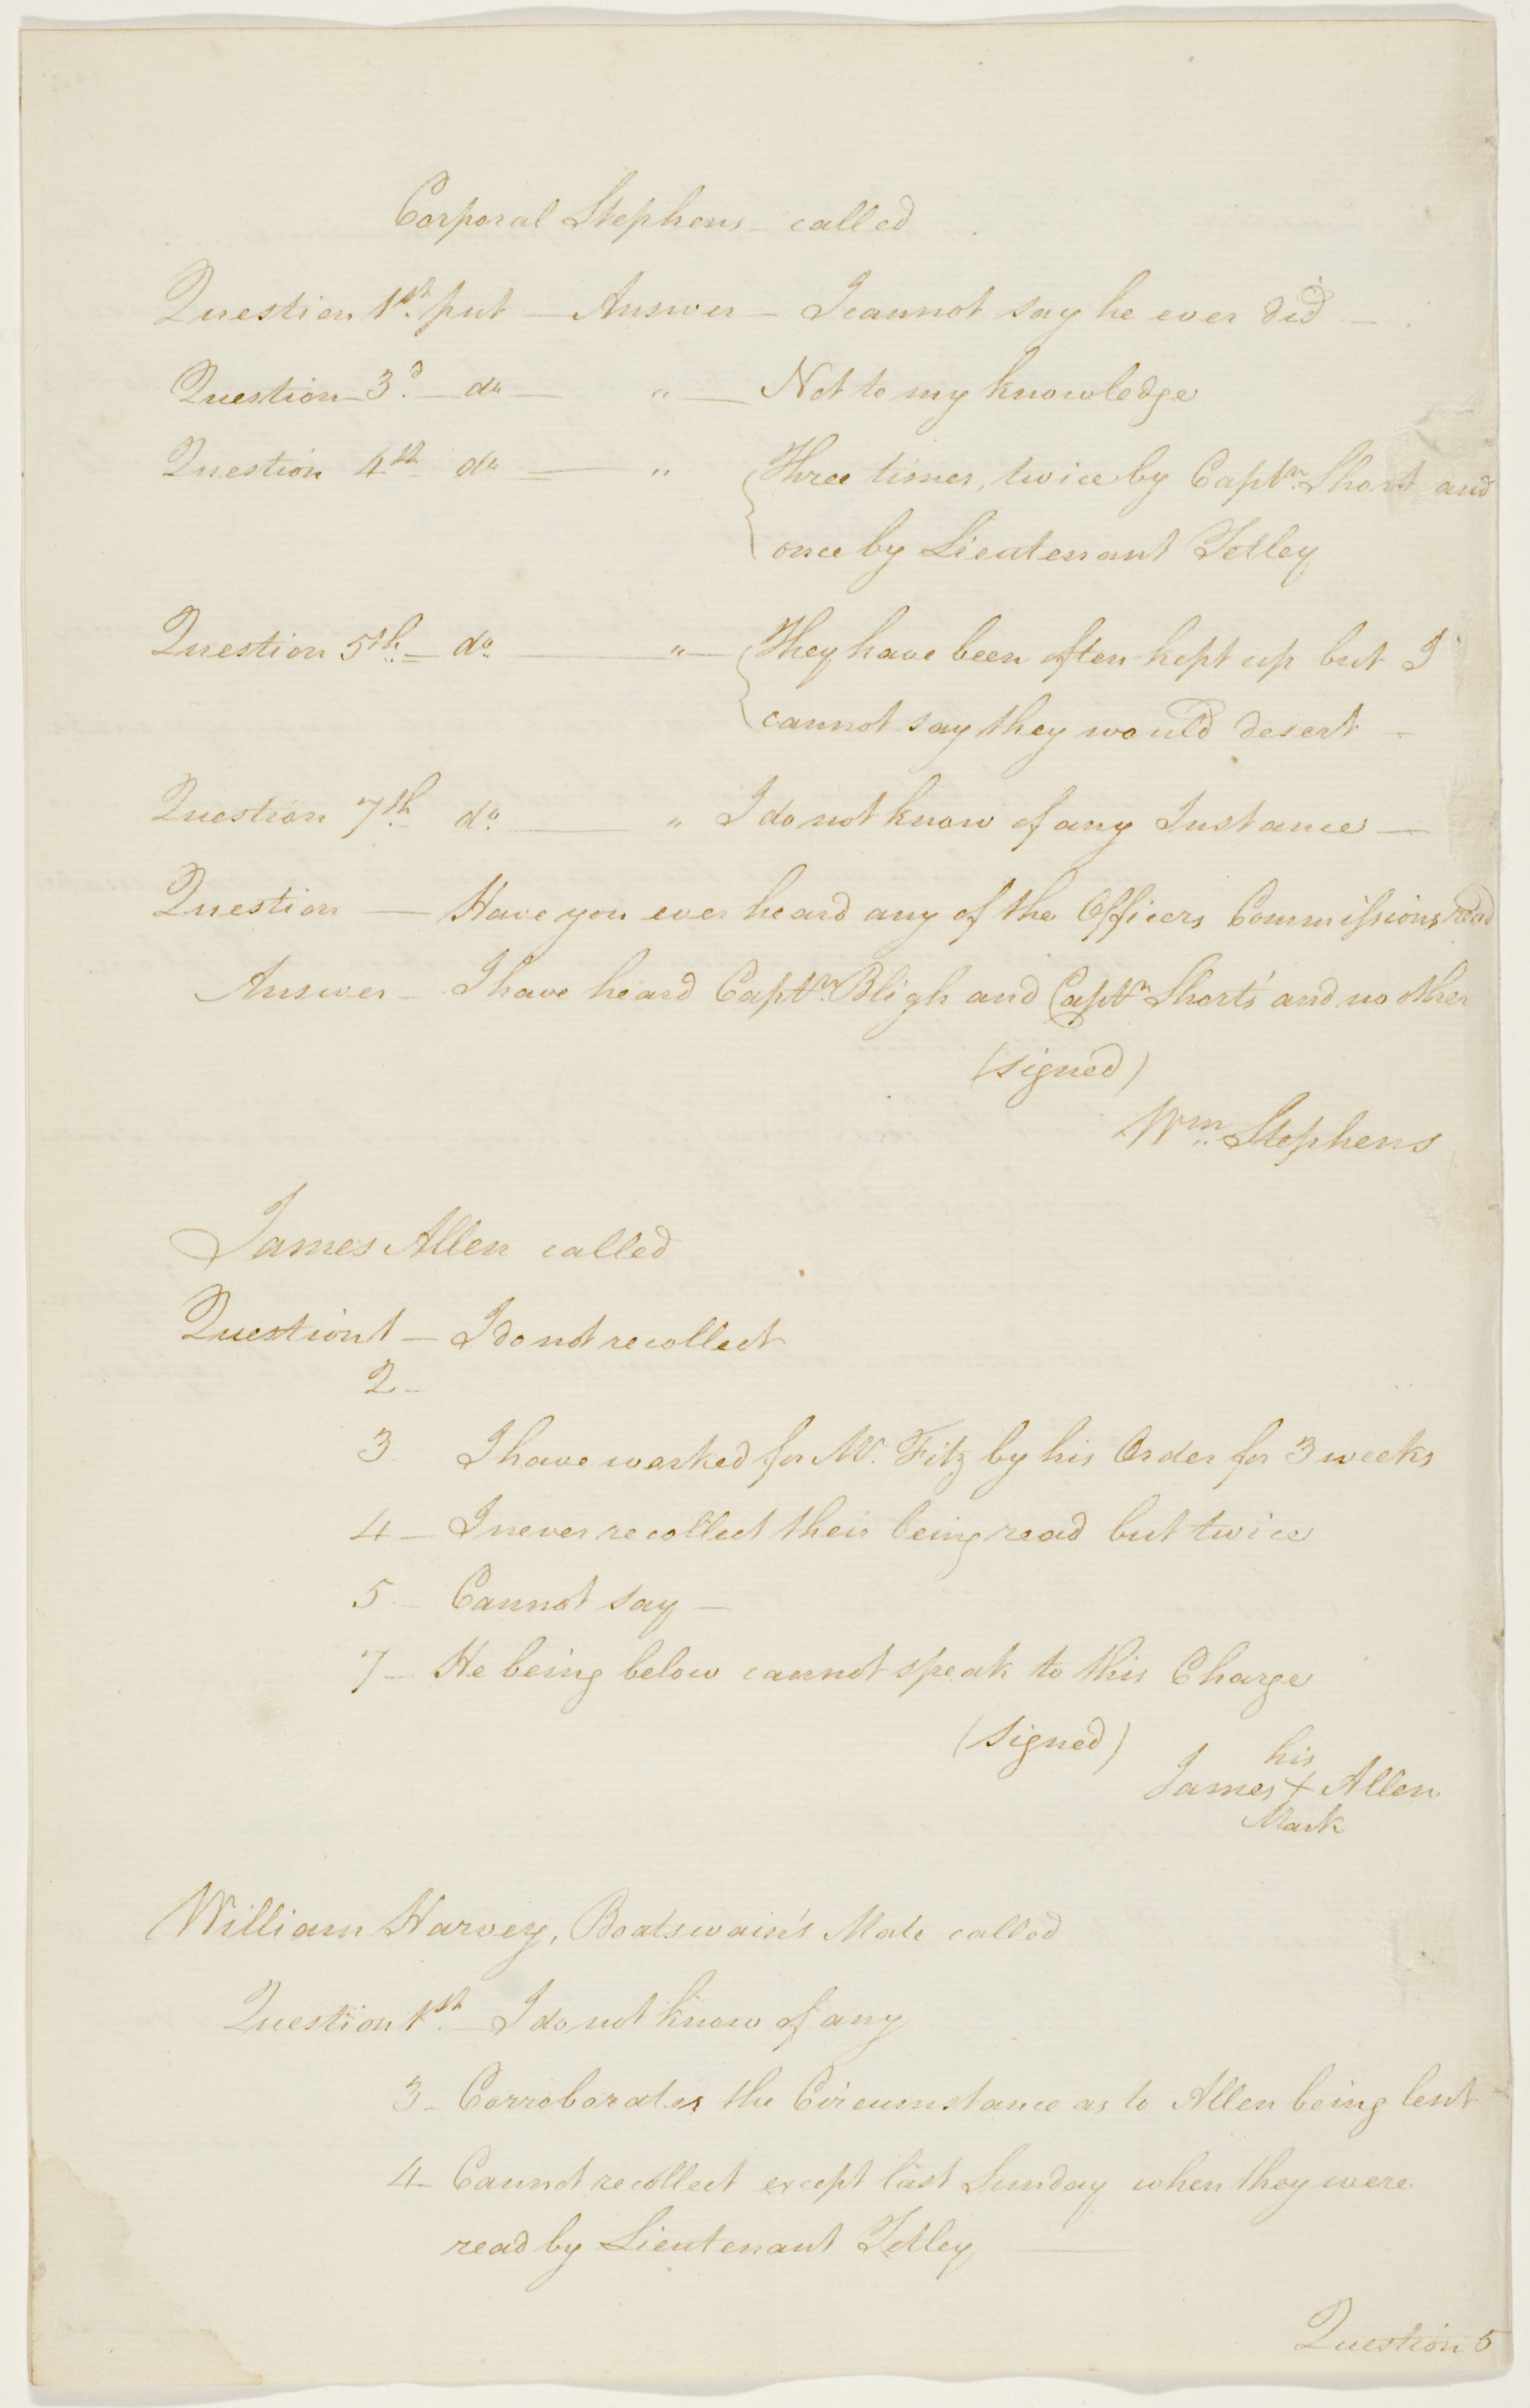 Corporal Stephens - called
Question 1st. put — Answer — I cannot say he ever did —
Question - 3d. — do — " — Not to my knowledge
Question 4th do — " Three times, twice by Captn. Short and
once by Lieutenant Tetley
Question 5th. — do. — " — They have been often kept up but I
cannot say they would desert —
Question 7th. do. — " I do not know of any Instance —
Question — Have you ever heard any of the Officers Commissions read
Answer — I have heard Captn. Bligh and Captn Short's and no other
(signed)
Wm. Stephens
James Allen called
Question 1 — I do not recollect
2 —
3. I have worked for Mr. Fitz by his Order for 3 weeks
4 — I never recollect their being read but twice
5 — Cannot say —
7 — He being below cannot speak to this Charge
(signed)
his
James + Allen
Mark
William Harvey, Boatswain's Mate called
Question 1st. — I do not know of any
3 — Corroborates the Circumstance as to Allen being lent
4 — Cannot recollect except last Sunday when they were
read by Lieutenant Tetley —
Question 5